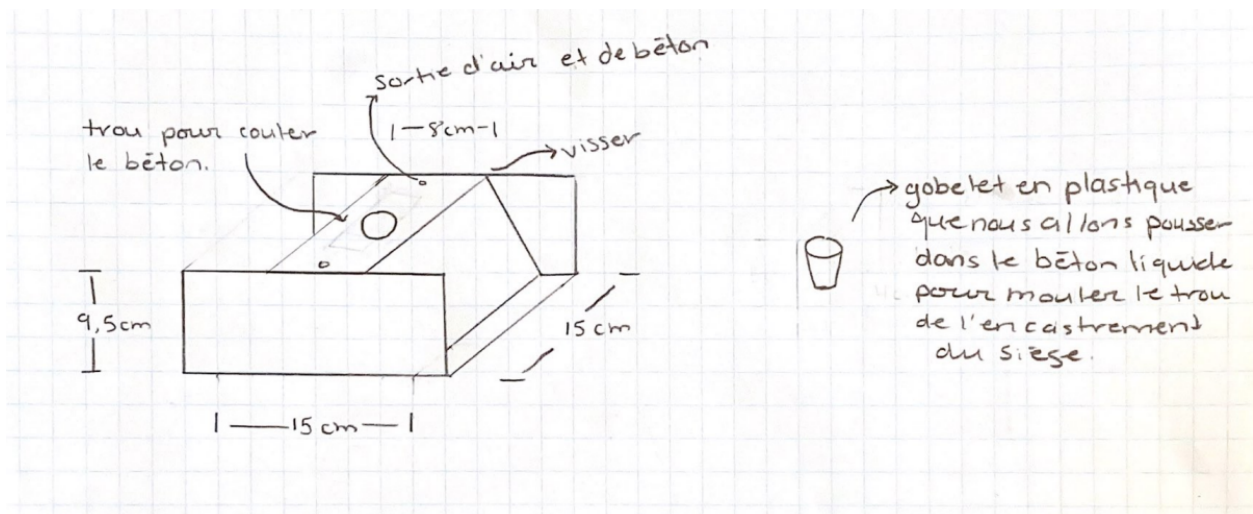 sortie d'air et de béton
trou pour couler
le béton.
|—8cm—|
visser
9,5cm
15 cm
|——15 cm——|
gobelet en plastique
que nous allons pousser
dans le béton liquide
pour mouler le trou
de l'encastrement
du siège.